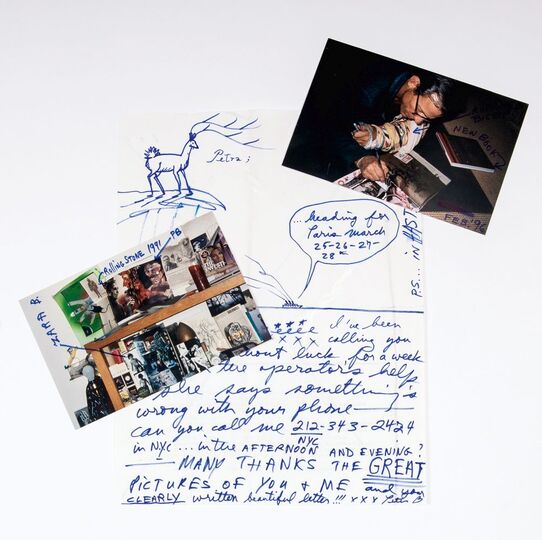 Petra;
... heading for
Paris March
25-26-27-
28
P.S. ... in HASTE
I've been
xxx calling you
without luck for a week
the operator's help
she says something's
wrong with your phone—
can you call me 212-343-2424
NYC
in NYC ... in the AFTERNOON AND EVENING?
— MANY THANKS THE GREAT
PICTURES OF YOU + ME and your
CLEARLY written beautiful letter!!! xxx
ROLLING STONE 1991
PB
ZARA B.
NEW BOOK
FEB. '96